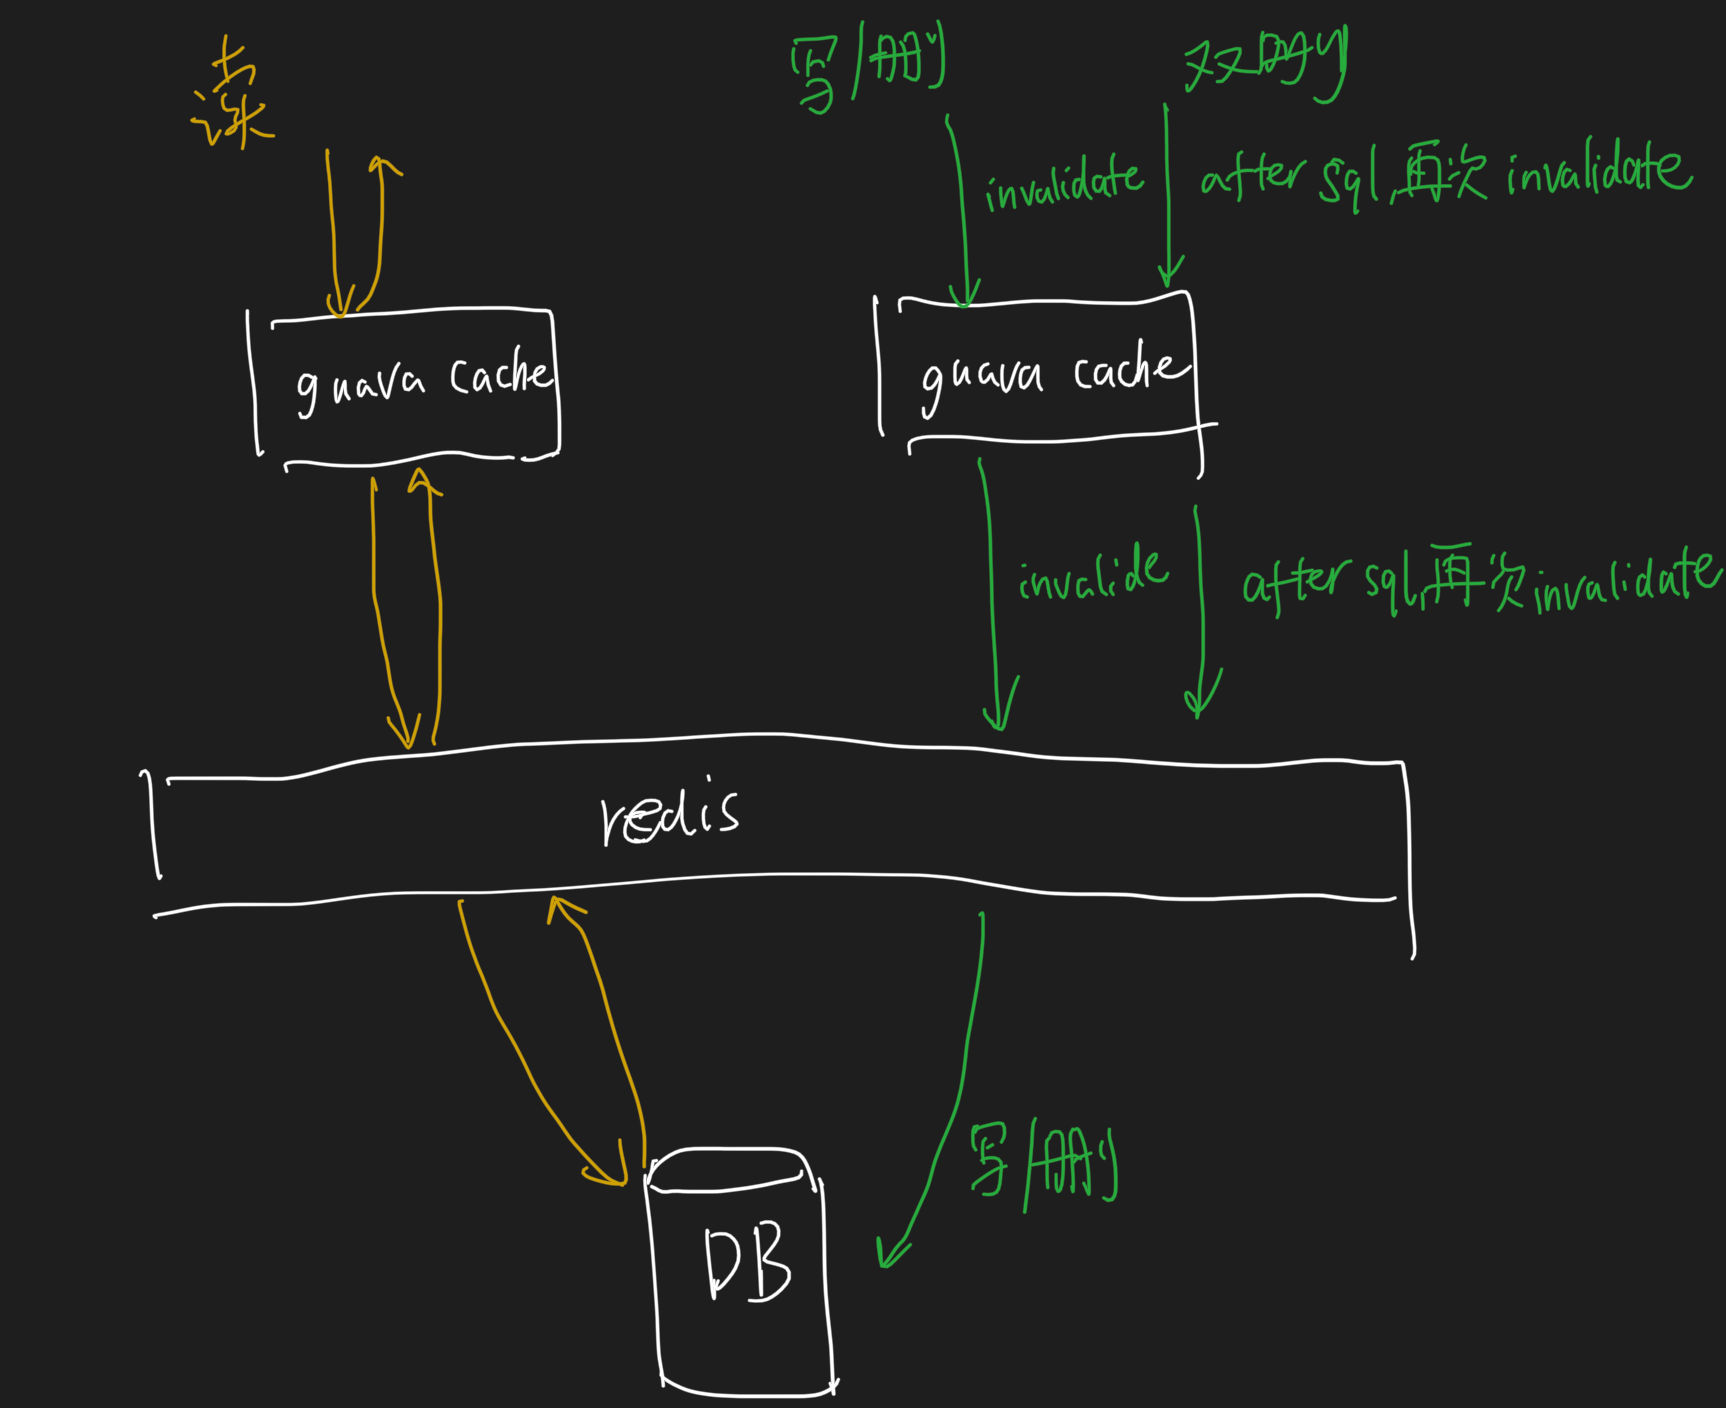 读
写/删
双删
invalidate
after sql,再次 invalidate
guava cache
guava cache
invalide
after sql,再次invalidate
redis
写/删
DB